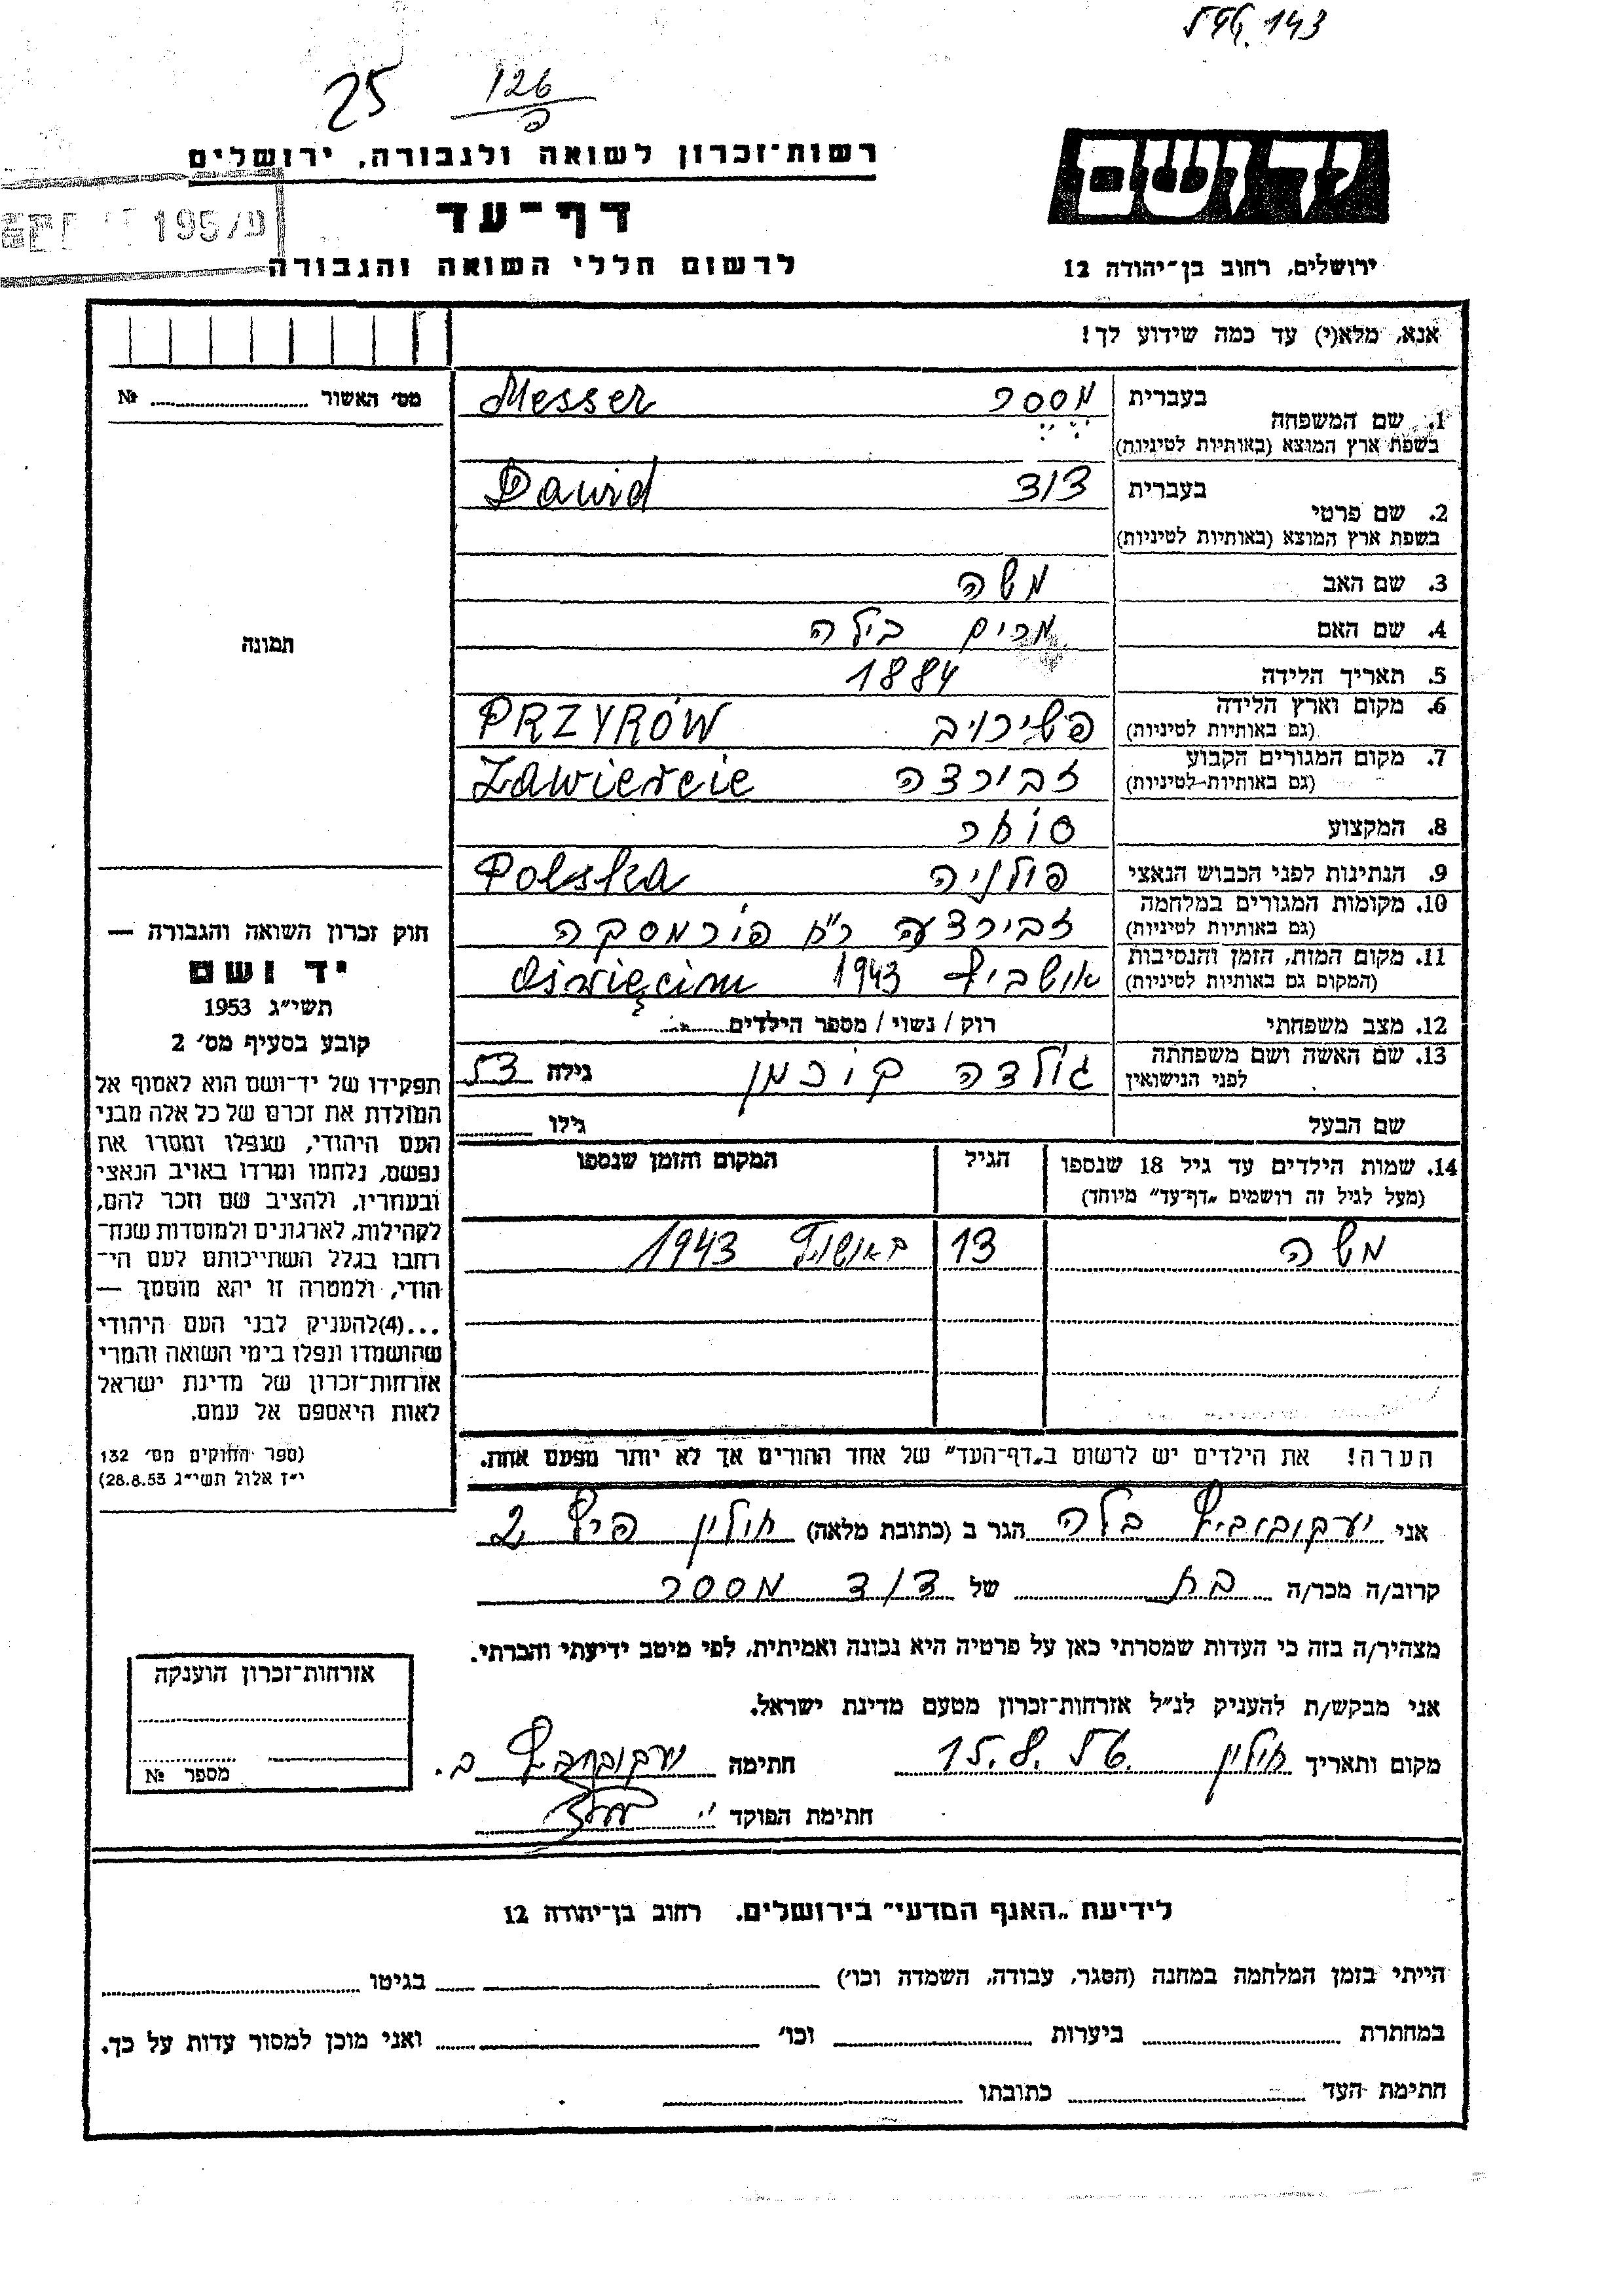 143
25 126
רשות־זכרון לשואה ולגבורה, ירושלים
יד ושם
דף־עד
195
לרשום חללי השואה והגבורה
ירושלים, רחוב בן־יהודה 12
אנא, מלא(י) עד כמה שידוע לך!
מס׳ האשור № 
1. שם המשפחה בעברית מססר Messer
בשפת ארץ המוצא (באותיות לטיניות)
2. שם פרטי בעברית דוד Dawid
בשפת ארץ המוצא (באותיות לטיניות)
3. שם האב משה
4. שם האם מרים בילה
תמונה
5. תאריך הלידה 1884
6. מקום וארץ הלידה פשירויב PRZYRÓW
(גם באותיות לטיניות)
7. מקום המגורים הקבוע זבירצה Zawiercie
(גם באותיות לטיניות)
8. המקצוע סוחר
9. הנתינות לפני הכבוש הנאצי פולניה Polska
10. מקומות המגורים במלחמה זבירצה רח׳ פורמסקה
(גם באותיות לטיניות)
11. מקום המות, הזמן והנסיבות אושביץ 1943 Oświęcim
(המקום גם באותיות לטיניות)
12. מצב משפחתי רוק / נשוי / מספר הילדים
13. שם האשה ושם משפחתה גולדה בורמן גילה
לפני הנישואין
שם הבעל גילו
14. שמות הילדים עד גיל 18 שנספו הגיל המקום והזמן שנספו
(מעל לגיל זה רושמים „דף־עד” מיוחד)
משה 13 1943
הערה! את הילדים יש לרשום ב„דף־העד” של אחד ההורים אך לא יותר מפעם אחת.
חוק זכרון השואה והגבורה —
יד ושם
תשי״ג 1953
קובע בסעיף מס׳ 2
תפקידו של יד־ושם הוא לאסוף אל
המולדת את זכרם של כל אלה מבני
העם היהודי, שנפלו ומסרו את
נפשם, נלחמו ומרדו באויב הנאצי
ובעוזריו, ולהציב שם וזכר להם,
לקהילות, לארגונים ולמוסדות שנח־
רבו בגלל השתייכותם לעם הי־
הודי, ולמטרה זו יהא מוסמך —
...(4) להעניק לבני העם היהודי
שהושמדו ונפלו בימי השואה והמרי
אזרחות־זכרון של מדינת ישראל
לאות היאספם אל עמם.
(ספר החוקים מס׳ 132
י״ז אלול תשי״ג 28.8.53)
אני יעקובוביץ בלה הגר ב (כתובת מלאה) חולון
קרוב/ה מכר/ה בת של דוד מססר
מצהיר/ה בזה כי העדות שמסרתי כאן על פרטיה היא נכונה ואמיתית, לפי מיטב ידיעתי והכרתי.
אני מבקש/ת להעניק לנ״ל אזרחות־זכרון מטעם מדינת ישראל.
מקום ותאריך חולון 15.8. חתימה יעקובוביץ ב.
חתימת הפוקד
אזרחות־זכרון הוענקה
מספר №
לידיעת „האגף המדעי” בירושלים, רחוב בן־יהודה 12
הייתי בזמן המלחמה במחנה (הסגר, עבודה, השמדה וכו׳) בגיטו
במחתרת ביערות וכו׳ ואני מוכן למסור עדות על כך.
חתימת העד כתובתו